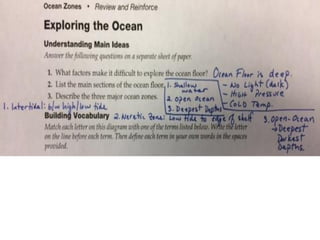 Ocean Zones • Review and Reinforce
Exploring the Ocean
Understanding Main Ideas
Answer the following questions on a separate sheet of paper.
1. What factors make it difficult to explore the ocean floor? Ocean Floor is deep.
- No Light (dark)
- High Pressure
- Cold Temp.
2. List the main sections of the ocean floor. 1. Shallow water
2. Open Ocean
3. Deepest Depths
3. Describe the three major ocean zones.
1. Intertidal: b/w high/low tide
2. Neretic Zone: Low tide to edge of shelf
3. Open-Ocean
→ Deepest
Darkest
Depths.
Building Vocabulary
Match each letter on this diagram with one of the terms listed below. Write the letter
on the line before each term. Then define each term in your own words in the spaces
provided.